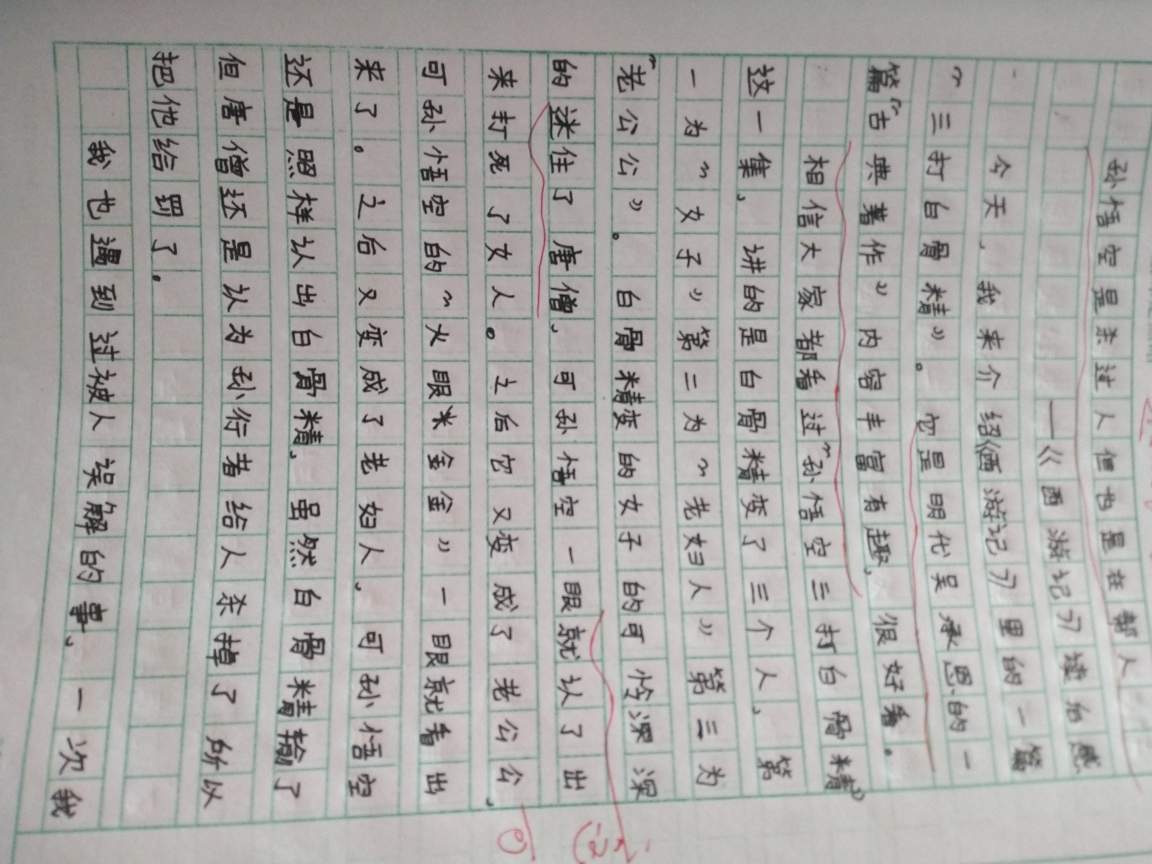 孙悟空是杀过人但也是在帮人
——《西游记》读后感
今天，我来介绍《西游记》里的一篇
“三打白骨精”。它是明代吴承恩的一
篇“古典著作”内容丰富有趣，很好看。
相信大家都看过“孙悟空三打白骨精”
这一集，讲的是白骨精变了三个人，第
一为“女子”第二为“老妇人”第三为
“老公公”。白骨精变的女子的可怜深深
的迷住了唐僧，可孙悟空一眼就认了出
来打死了女人。之后它又变成了老公公，
可孙悟空的“火眼米金金”一眼就看出
来了。之后又变成了老妇人，可孙悟空
还是照样认出白骨精，虽然白骨精输了
但唐僧还是认为孙行者给人杀掉了所以
把他给罚了。
我也遇到过被人误解的事，一次我